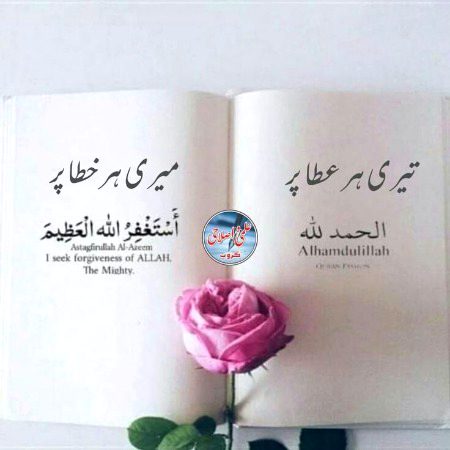 تیری ہر عطا پر
الحمد لله
Alhamdulillah
میری ہر خطا پر
أَسْتَغْفِرُ اللهَ الْعَظِيمَ
Astagfirullah Al-Azeem
I seek forgiveness of ALLAH.
The Mighty.
گروپ